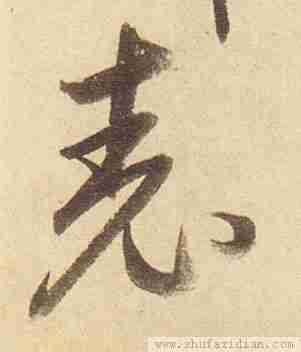 表
www.shufazidian.com